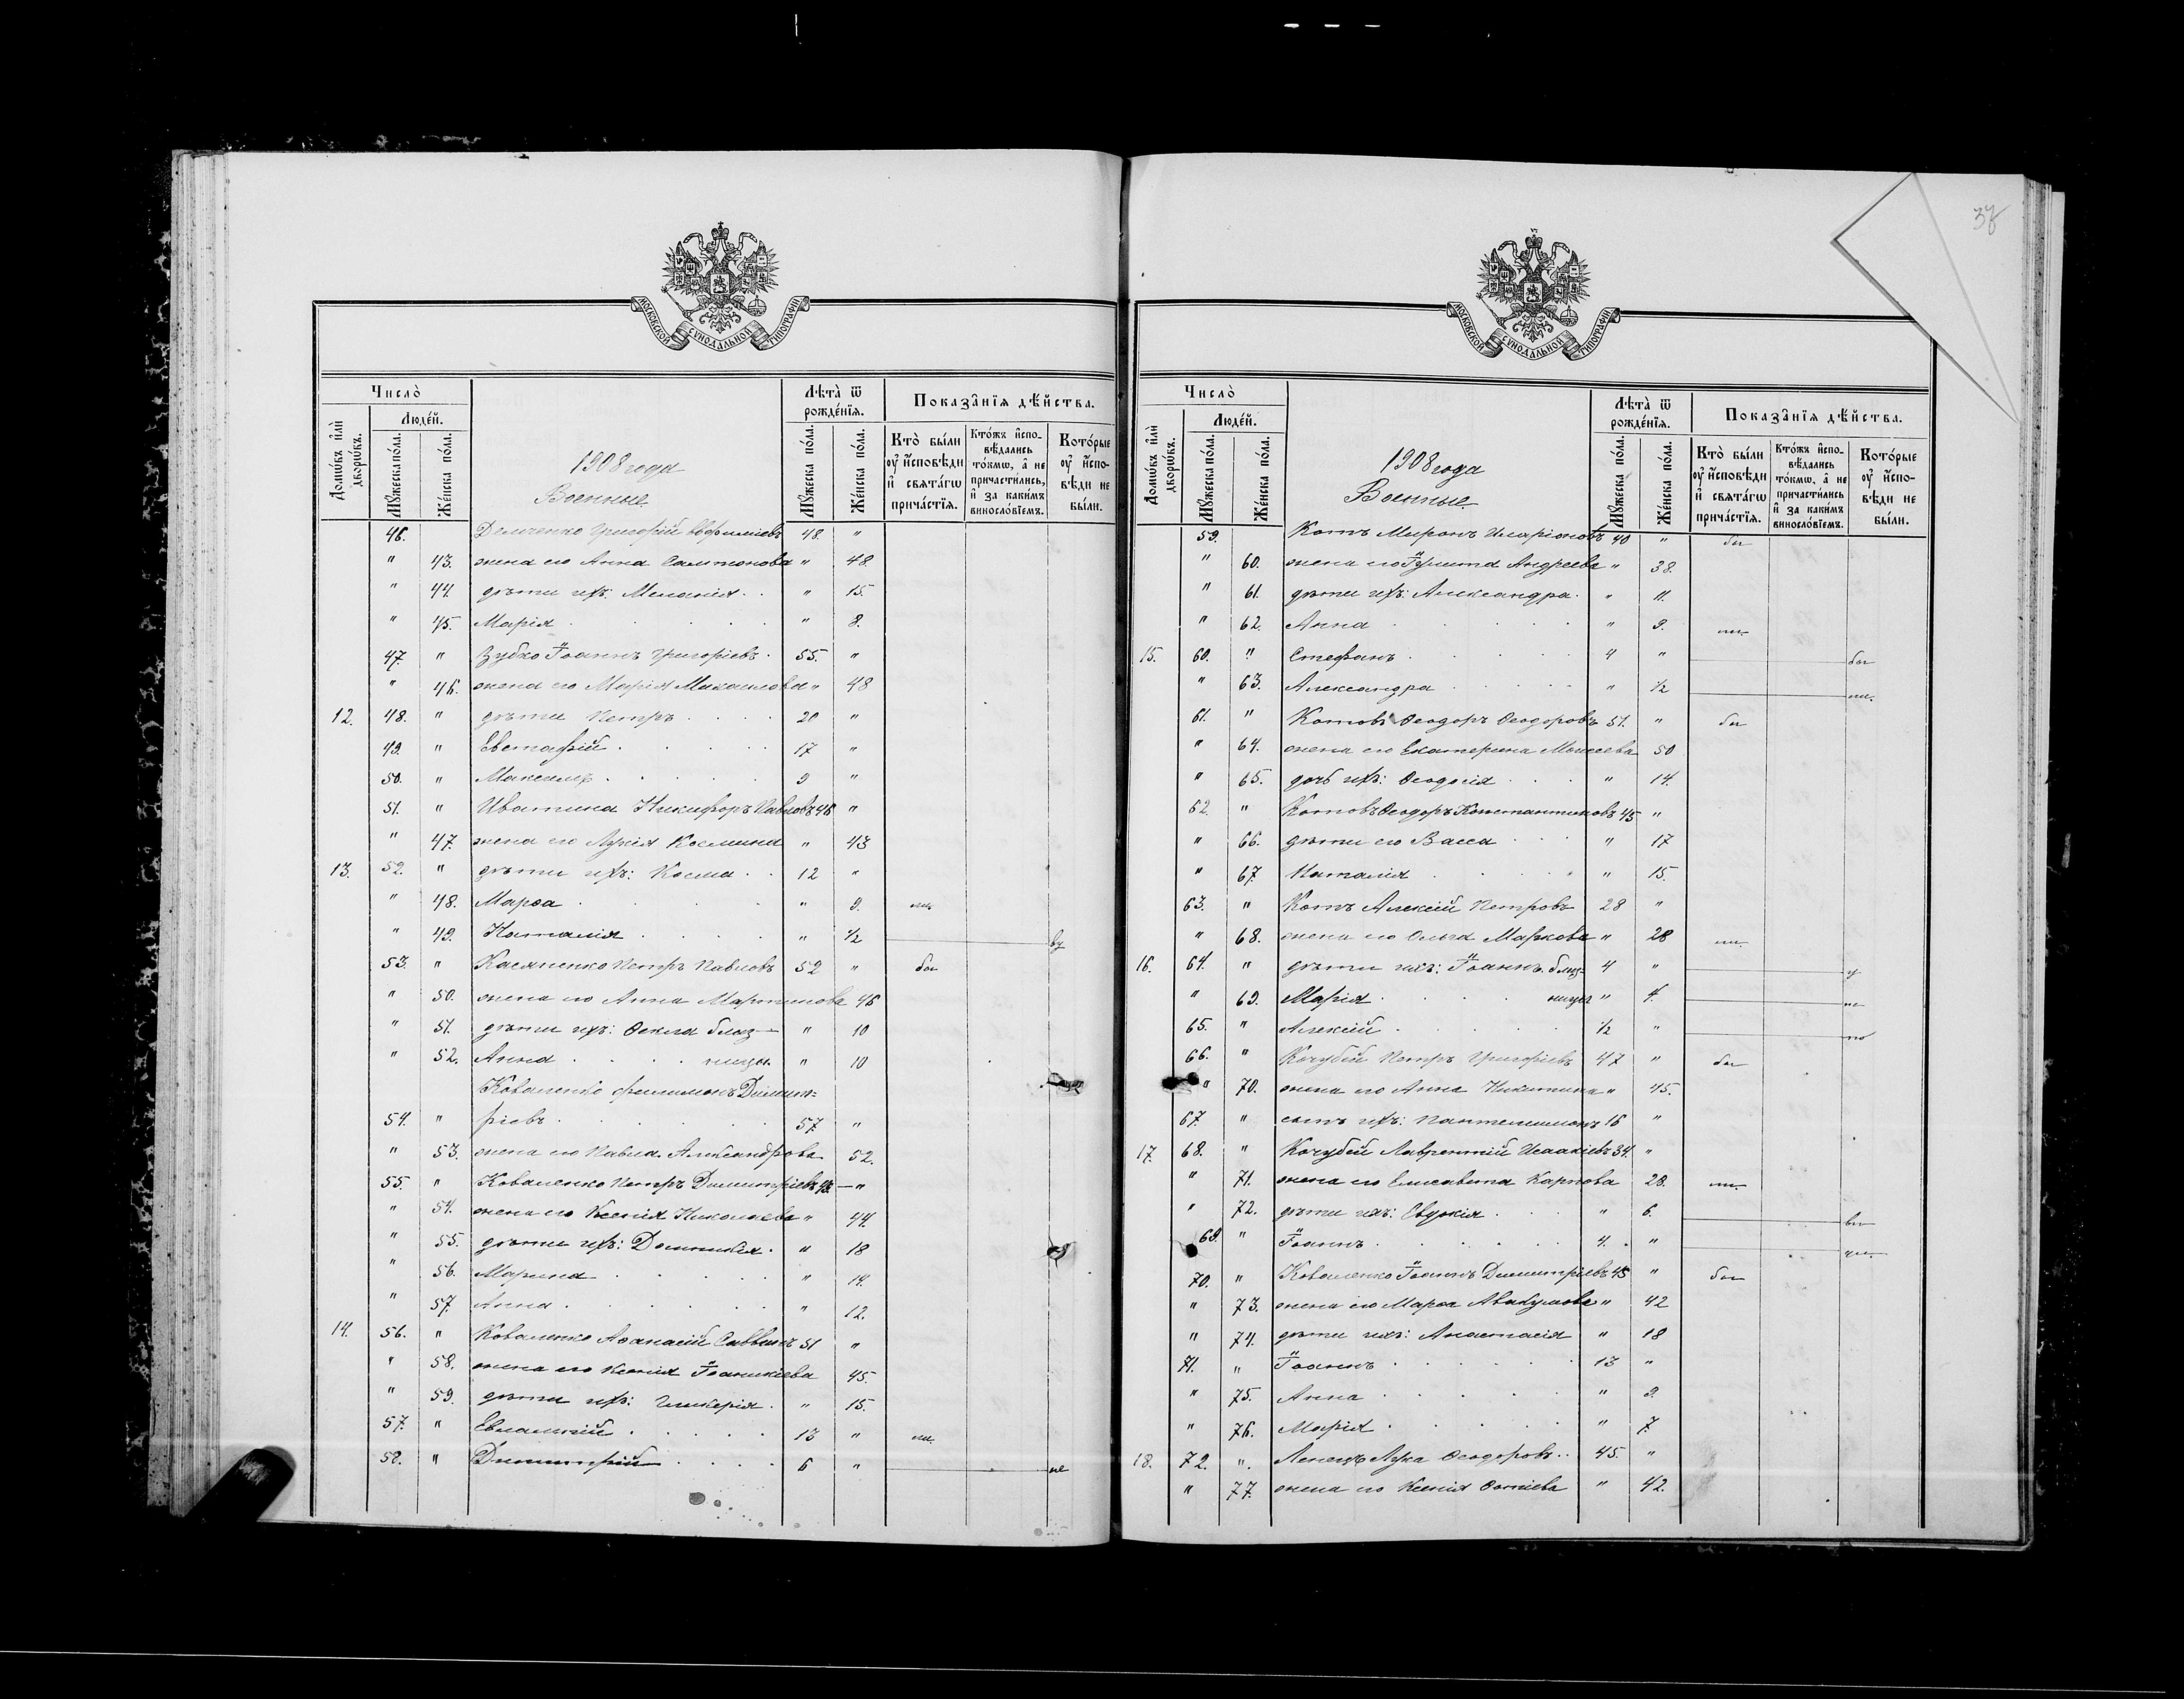 37
МОСКОВСКОЙ СѴНОДАЛЬНОЙ ТИПОГРАФІИ
Число̀
Людей.
Домѡвъ и҆лѝ дворѡвъ.
Мꙋжеска пола.
Женска пола.
1908 года
Военные
Лѣта̀ ѿ рожденїѧ.
Мꙋжеска пола.
Женска пола.
Показанїѧ дѣйства.
Кто̀ были ᲂу҆ и҆сповѣди и҆ свѧтагѡ причастїѧ.
Кто́жъ и҆спо- вѣдались то́кмѡ, а҆ не причастились, и҆ за какимъ винословїемъ.
Которые ᲂу҆ и҆спо- вѣди не были.
46. Григорій Евфиміевъ 48. "
" 43. жена его Анна " 48
" 44. дѣти ихъ: Меланія " 15.
" 45. Марія " 8.
47. " Зубко Іоаннъ Григоріевъ 55. "
" 46. жена его Марія Михаилова " 48
12. 48. " дѣти Петръ 20 "
49. " Евстафій 17 "
50. " Максимъ 9 "
51. " Иватина Никифоръ Павловъ 46 "
" 47. жена его Лукія Космина " 43
13. 52. " дѣти ихъ: Косма 12 "
" 48. Марѳа " 9.
" 49. Наталія " ½
53. " Касяненко Петръ Павловъ 52 "
" 50. жена его Анна Мартинова 46
" 51. дѣти ихъ: Ѳекла близ- " 10
" 52. Анна ницы. " 10
Коваленко Филимонъ Димит=
54. " ріевъ 57. "
" 53. жена его Павла Александрова 52.
55. " Коваленко Петръ Димитріевъ "
" 54. жена его Ксенія Николаева " 44.
" 55. дѣти ихъ: Домникія " 18
" 56. Марина " 14.
" 57. Анна " 12.
14. 56. " Коваленко Аѳанасій Саввинъ 51 "
" 58. жена его Ксенія Іоанникіева 45.
" 59. дѣти ихъ: Гликерія " 15.
57. " Евлампій 13 "
58. " Димитрій 6 "
МОСКОВСКОЙ СѴНОДАЛЬНОЙ ТИПОГРАФІИ
Число̀
Людей.
Домѡвъ и҆лѝ дворѡвъ.
Мꙋжеска пола.
Женска пола.
1908 года
Военные
Лѣта̀ ѿ рожденїѧ.
Мꙋжеска пола.
Женска пола.
Показанїѧ дѣйства.
Кто̀ были ᲂу҆ и҆сповѣди и҆ свѧтагѡ причастїѧ.
Кто́жъ и҆спо- вѣдались то́кмѡ, а҆ не причастились и҆ за какимъ винословїемъ.
Которые ᲂу҆ и҆спо- вѣди не были.
59. Котъ Миронъ Иларіоновъ 40 "
" 60. жена его Іулитта Андреева " 38.
" 61. дѣти ихъ: Александра " 11.
" 62. Анна " 9.
15. 60. " Стефанъ 4 "
" 63. Александра " ½
61. " Котовъ Ѳеодоръ Ѳеодоровъ 51. "
" 64. жена его Екатерина Моисеева 50
" 65. дочь ихъ: Ѳеодосія " 14.
62. " Котовъ Ѳеодоръ Константиновъ 45 "
" 66. дѣти его Васса " 17
" 67. Наталія " 15.
63. " Котъ Алексій Петровъ 28 "
" 68. жена его Ольга Маркова " 28
16. 64. " дѣти ихъ: Іоаннъ близ- 4 "
" 69. Марія ницы " 4.
65. " Алексій ½ "
66. " Кочубей Петръ Григоріевъ 47 "
" 70. жена его Анна Никитина " 45.
67. " сынъ ихъ: Пантелеимонъ 16 "
17. 68. " Кочубей Лаврентій Исаакіевъ 34. "
" 71. жена его Елисавета Карпова 28.
" 72. дѣти ихъ: Евдокія " 6.
69. " Іоаннъ 4. "
70. " Коваленко Іоаннъ Димитріевъ 45 "
" 73. жена его Марѳа Авакумова " 42
" 74. дѣти ихъ: Анастасія " 18
71. " Іоаннъ 13 "
" 75. Анна " 9.
" 76. Марія " 7.
18. 72. " Лука Ѳеодоровъ 45. "
" 77. жена его Ксенія " 42.